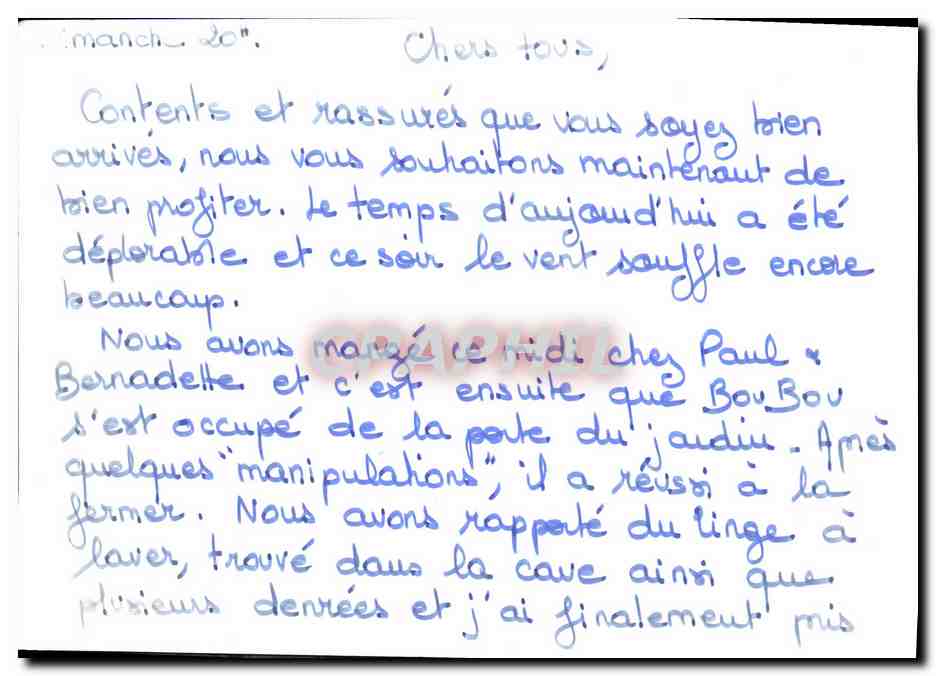 imanche 20".
Chers tous,
Contents et rassurés que vous soyez bien
arrivés, nous vous souhaitons maintenant de
bien profiter. Le temps d'aujourd'hui a été
déplorable et ce soir le vent souffle encore
beaucoup.
Nous avons mangé ce midi chez Paul &
Bernadette et c'est ensuite que BouBou
s'est occupé de la porte du jardin. Après
quelques "manipulations", il a réussi à la
fermer. Nous avons rapporté du linge à
laver, trouvé dans la cave ainsi que
plusieurs denrées et j'ai finalement pris
GRAPHIL